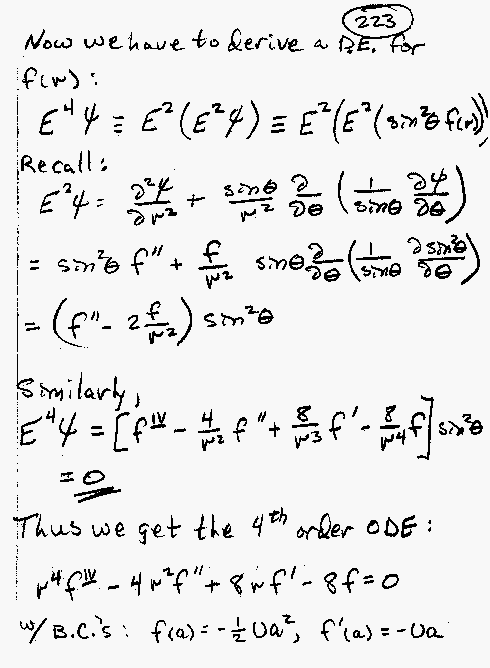 223
Now we have to derive a D.E. for
f(r):
E⁴ψ ≡ E²(E²ψ) ≡ E²(E²(sin²θ f(r)))
Recall:
E²ψ = ∂²ψ/∂r² + sinθ/r² ∂/∂θ (1/sinθ ∂ψ/∂θ)
= sin²θ f'' + f/r² sinθ ∂/∂θ (1/sinθ ∂sin²θ/∂θ)
= (f'' - 2 f/r²) sin²θ
Similarly,
E⁴ψ = [f^IV - 4/r² f'' + 8/r³ f' - 8/r⁴ f] sin²θ
= 0
Thus we get the 4th order ODE:
r⁴f^IV - 4r²f'' + 8rf' - 8f = 0
w/ B.C.'s: f(a) = -½Ua², f'(a) = -Ua